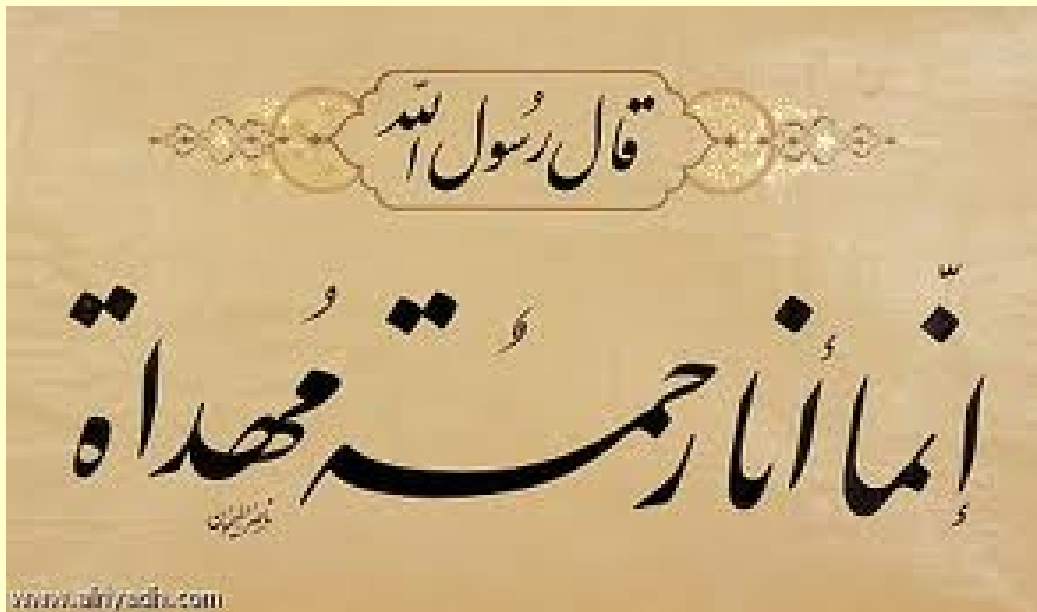 قال رسول الله
إنّما أنا رحمةٌ مُهداة
www.alriyadh.com